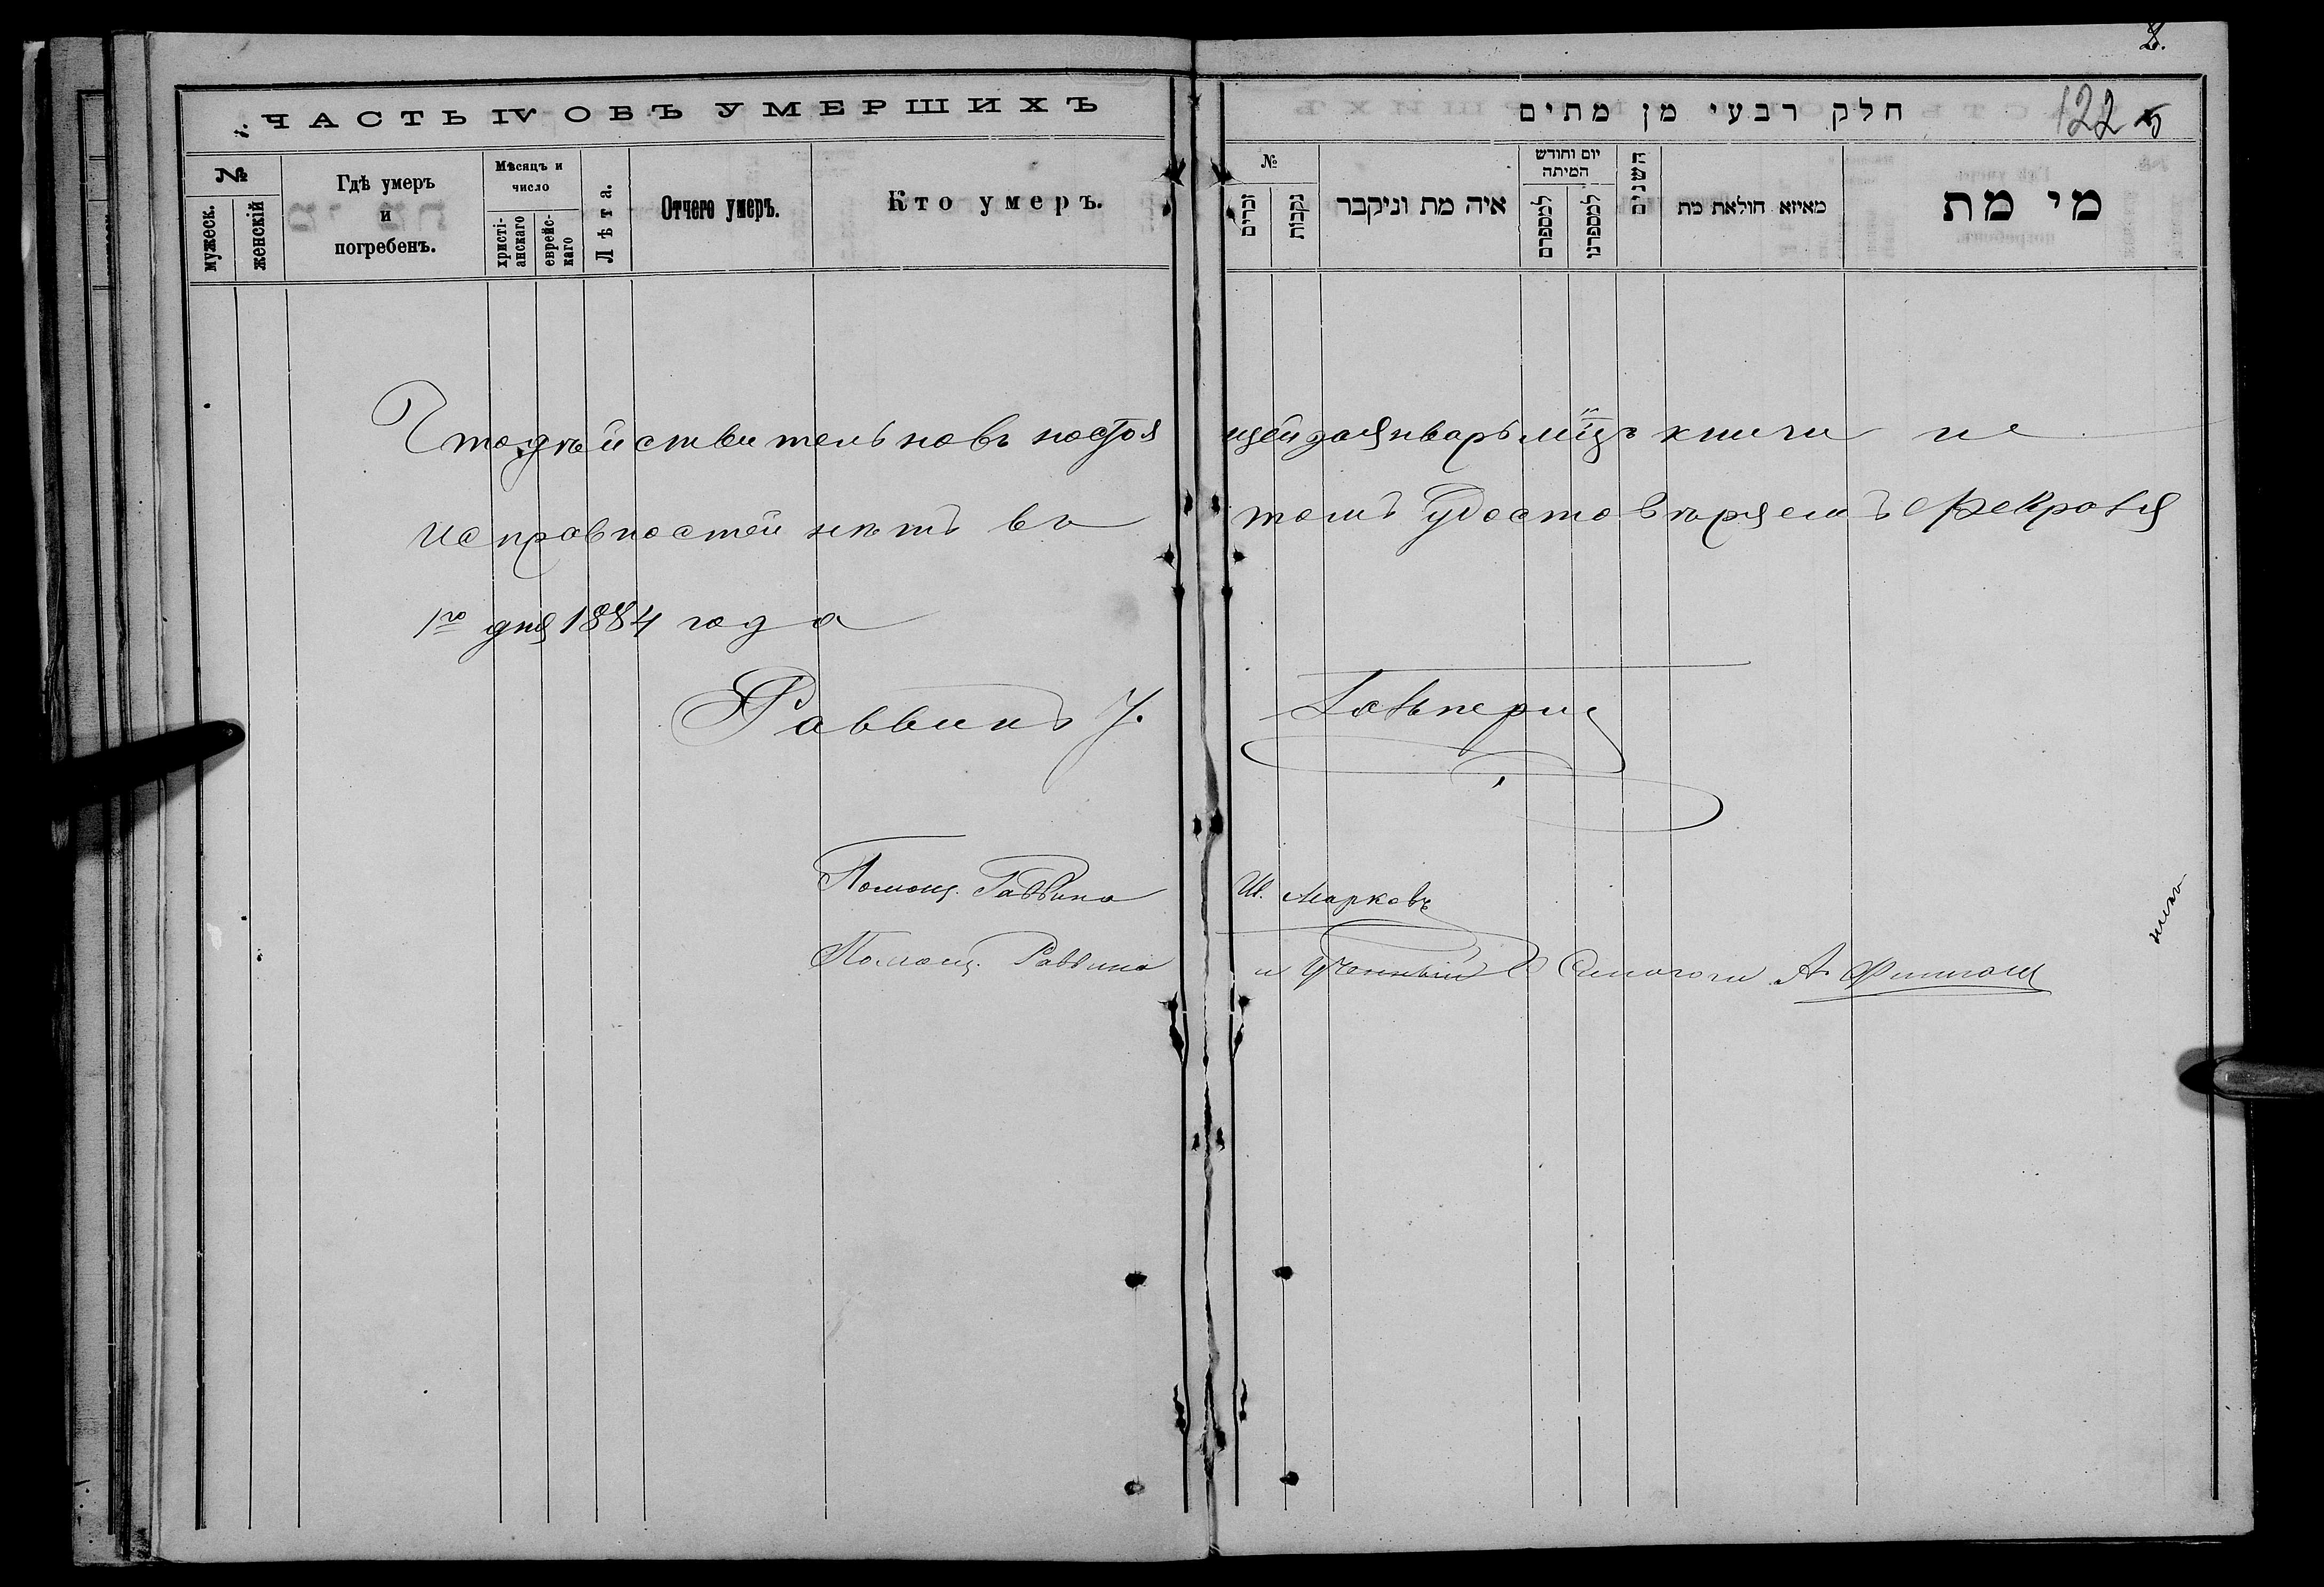 ЧАСТЬ IV ОБЪ УМЕРШИХЪ
№
мужеск.
женскій
Гдѣ умеръ
и
погребенъ.
Мѣсяцъ и
число
христі-
анскаго
еврейс-
каго
Лѣта.
Отчего умеръ.
Кто умеръ.
2.
חלק רבעי מן מתים
122 5
№
זכרים
נקבות
איה מת וניקבר
יום וחודש
המיתה
למספרם
למספרנו
השנים
מאיזא חולאת מת
מי מת
Что дѣйствительно въ настоящей за Январь мцъ книги не
исправностей нѣтъ въ томъ удостовѣряемъ Февраля
1го дня 1884 года
Раввинъ У. Гальперин
Помощ. Раввина Ш. Марковъ
Помощ. Раввина и Ученный Синагоги А.